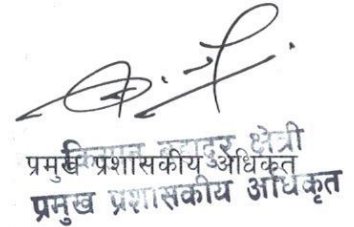 बहादुर क्षेत्री
प्रमुख प्रशासकीय अधिकृत
प्रमुख प्रशासकीय अधिकृत